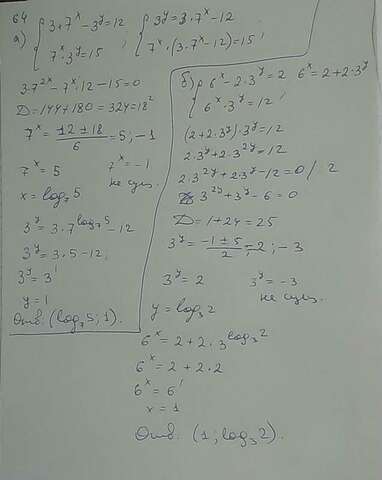 64
а) { 3·7^x - 3^y = 12
7^x · 3^y = 15 ;
{ 3^y = 3·7^x - 12
7^x · (3·7^x - 12) = 15
3·7^2x - 7^x · 12 - 15 = 0
D = 144 + 180 = 324 = 18^2
7^x = (12 ± 18)/6 = 5; -1
7^x = 5 7^x = -1
не сущ.
x = log_7 5
3^y = 3·7^(log_7 5) - 12
3^y = 3·5 - 12;
3^y = 3^1
y = 1
Отв: (log_7 5; 1).
б) { 6^x - 2·3^y = 2 6^x = 2 + 2·3^y
6^x · 3^y = 12 ;
(2 + 2·3^y)·3^y = 12
2·3^y + 2·3^2y = 12
2·3^2y + 2·3^y - 12 = 0 / 2
3^2y + 3^y - 6 = 0
D = 1 + 24 = 25
3^y = (-1 ± 5)/2 = 2; -3
3^y = 2 3^y = -3
не сущ.
y = log_3 2
6^x = 2 + 2·3^(log_3 2)
6^x = 2 + 2·2
6^x = 6^1
x = 1
Отв: (1; log_3 2).